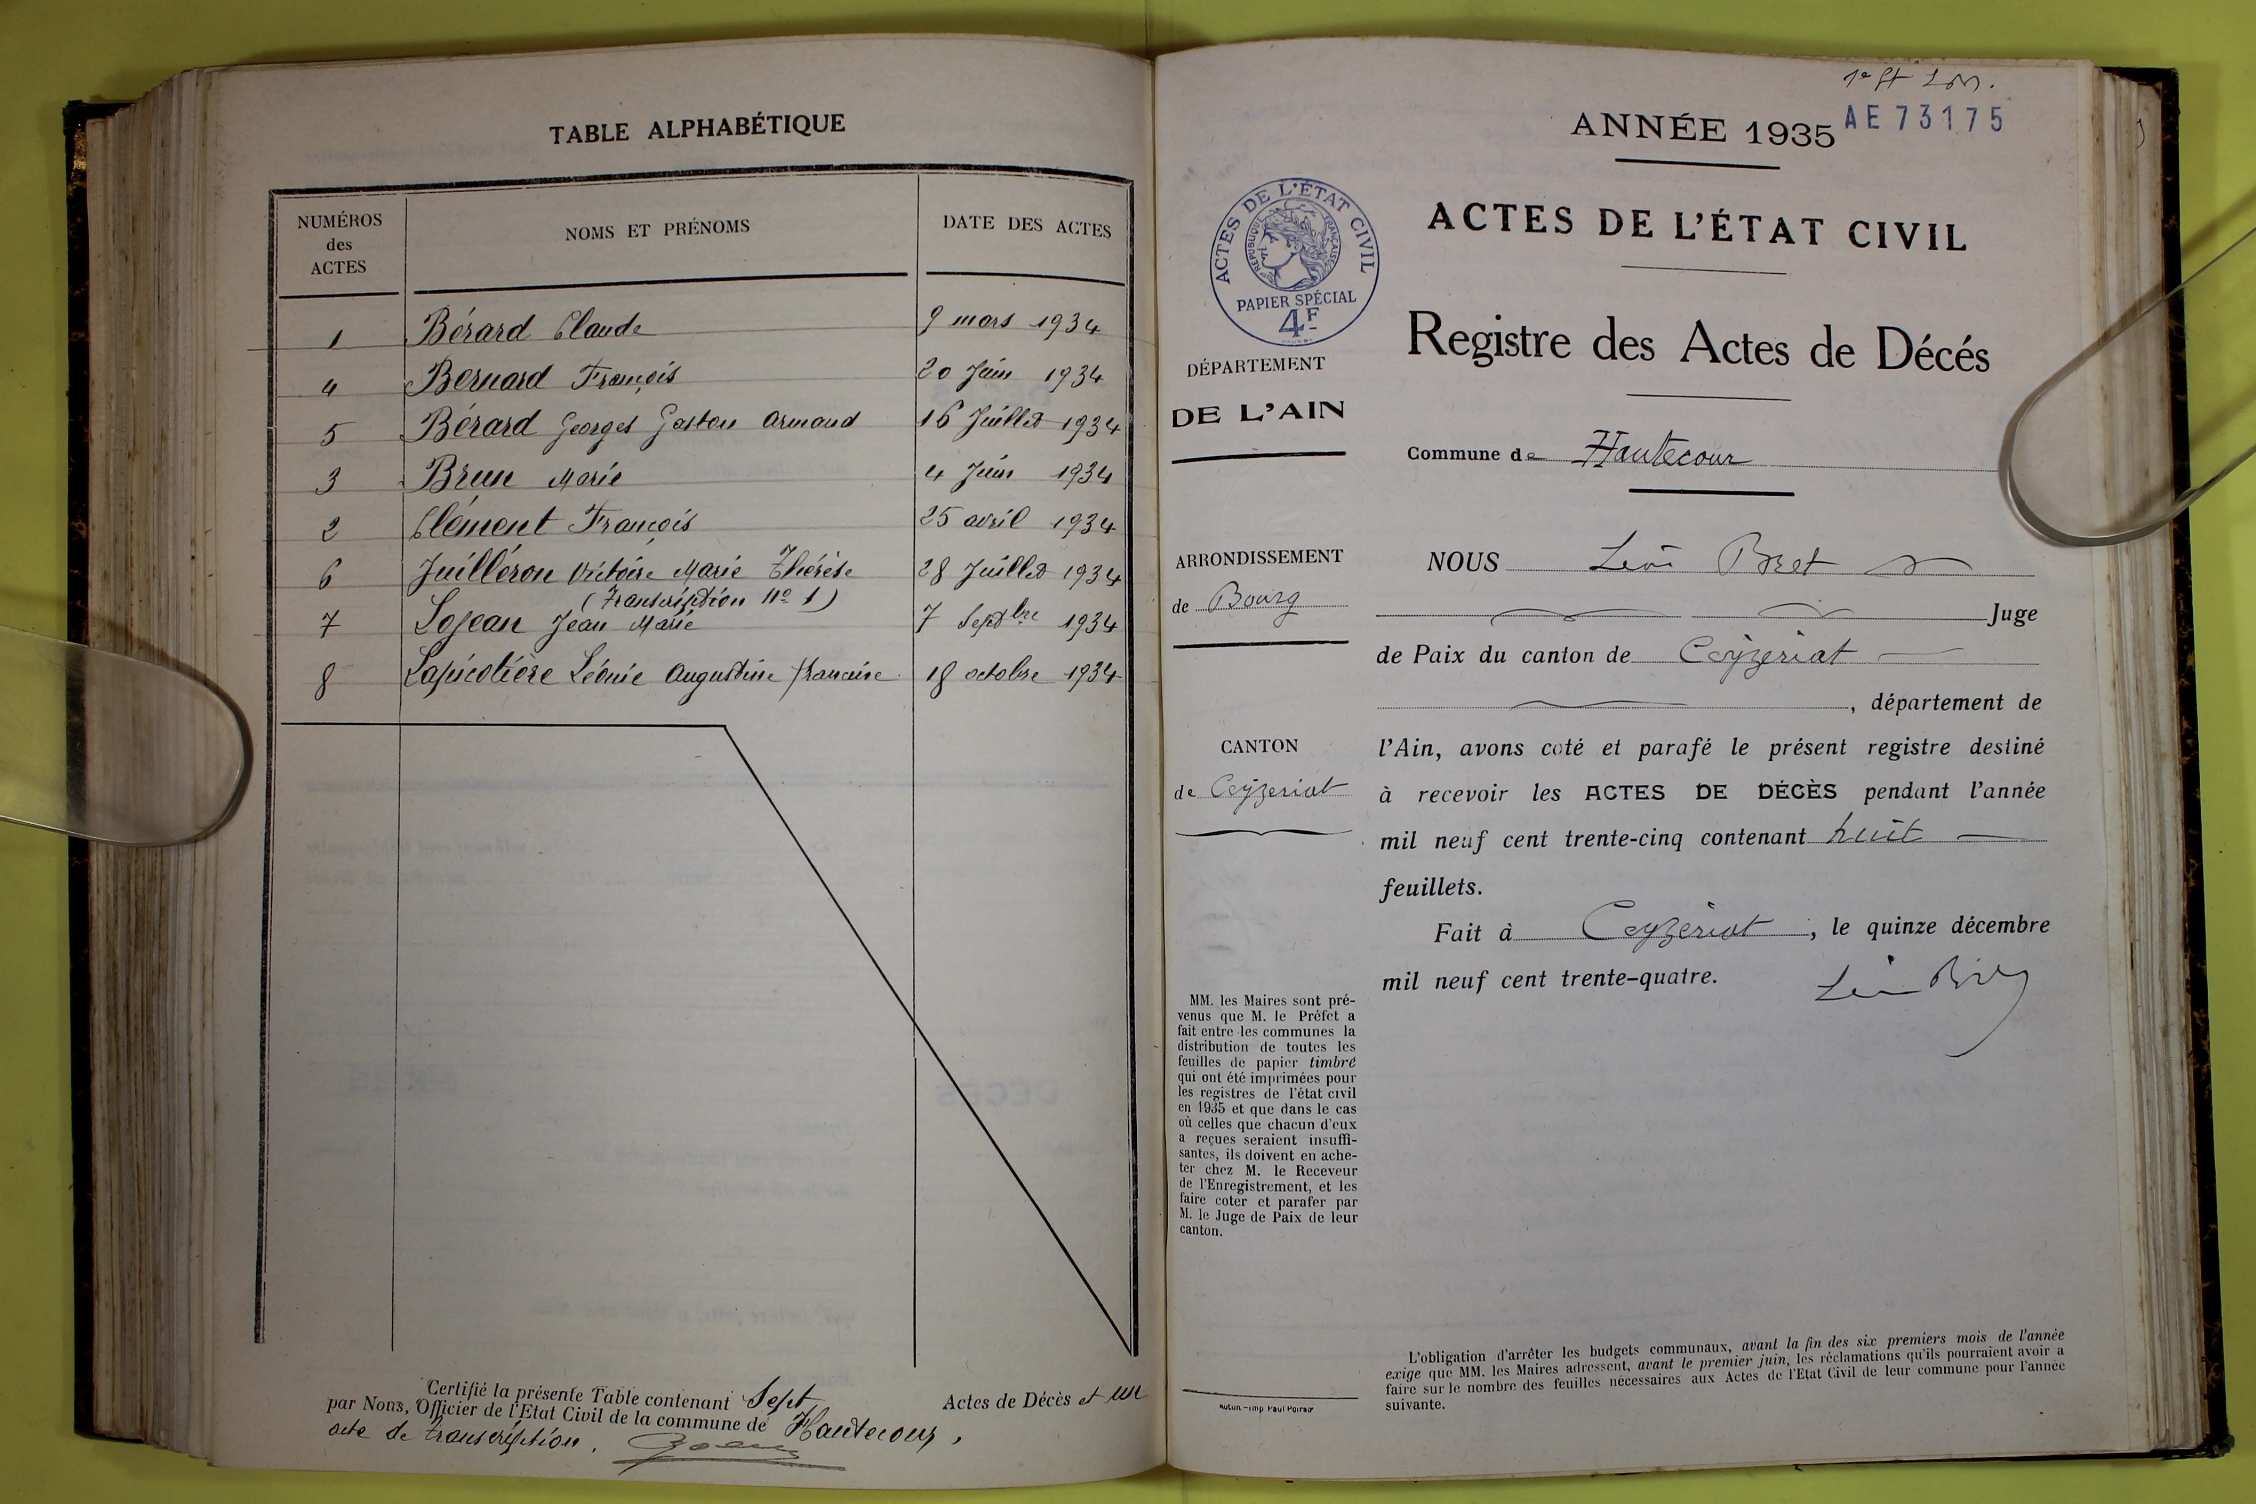 TABLE ALPHABÉTIQUE
NUMÉROS des ACTES NOMS ET PRÉNOMS DATE DES ACTES
1 Bérard Claude 9 mars 1934
4 Bernard François 20 Juin 1934
5 Bérard Georges Gaston Armand 16 Juillet 1934
3 Brun Marie 4 Juin 1934
2 Clément François 25 avril 1934
6 Juilléron Victoire Marie Thérèse 28 Juillet 1934
(Transcription No 1)
7 Lojean Jean Marie 7 Septbre 1934
8 Lapicotière Léonie Augustine 18 octobre 1934
Certifié la présente Table contenant Sept Actes de Décès et un
par Nous, Officier de l'Etat Civil de la commune de Hautecour,
acte de transcription.
AE 73175
ANNÉE 1935
ACTES DE L'ÉTAT CIVIL
RÉPUBLIQUE FRANÇAISE
PAPIER SPÉCIAL
4F
ACTES DE L'ÉTAT CIVIL
Registre des Actes de Décés
DÉPARTEMENT
DE L'AIN
Commune de Hautecour
ARRONDISSEMENT
de Bourg
CANTON
de Ceyzeriat
NOUS Léon Bret
Juge
de Paix du canton de Ceyzeriat
, département de
l'Ain, avons coté et parafé le présent registre destiné
à recevoir les ACTES DE DÉCÈS pendant l'année
mil neuf cent trente-cinq contenant huit
feuillets.
Fait à Ceyzeriat, le quinze décembre
mil neuf cent trente-quatre.
MM. les Maires sont pré-
venus que M. le Préfet a
fait entre les communes la
distribution de toutes les
feuilles de papier timbré
qui ont été imprimées pour
les registres de l'état civil
en 1935 et que dans le cas
où celles que chacun d'eux
a reçues seraient insuffi-
santes, ils doivent en ache-
ter chez M. le Receveur
de l'Enregistrement, et les
faire coter et parafer par
M. le Juge de Paix de leur
canton.
L'obligation d'arrêter les budgets communaux, avant la fin des six premiers mois de l'année
exige que MM. les Maires adressent, avant le premier juin, les réclamations qu'ils pourraient avoir a
faire sur le nombre des feuilles nécessaires aux Actes de l'Etat Civil de leur commune pour l'année
suivante.